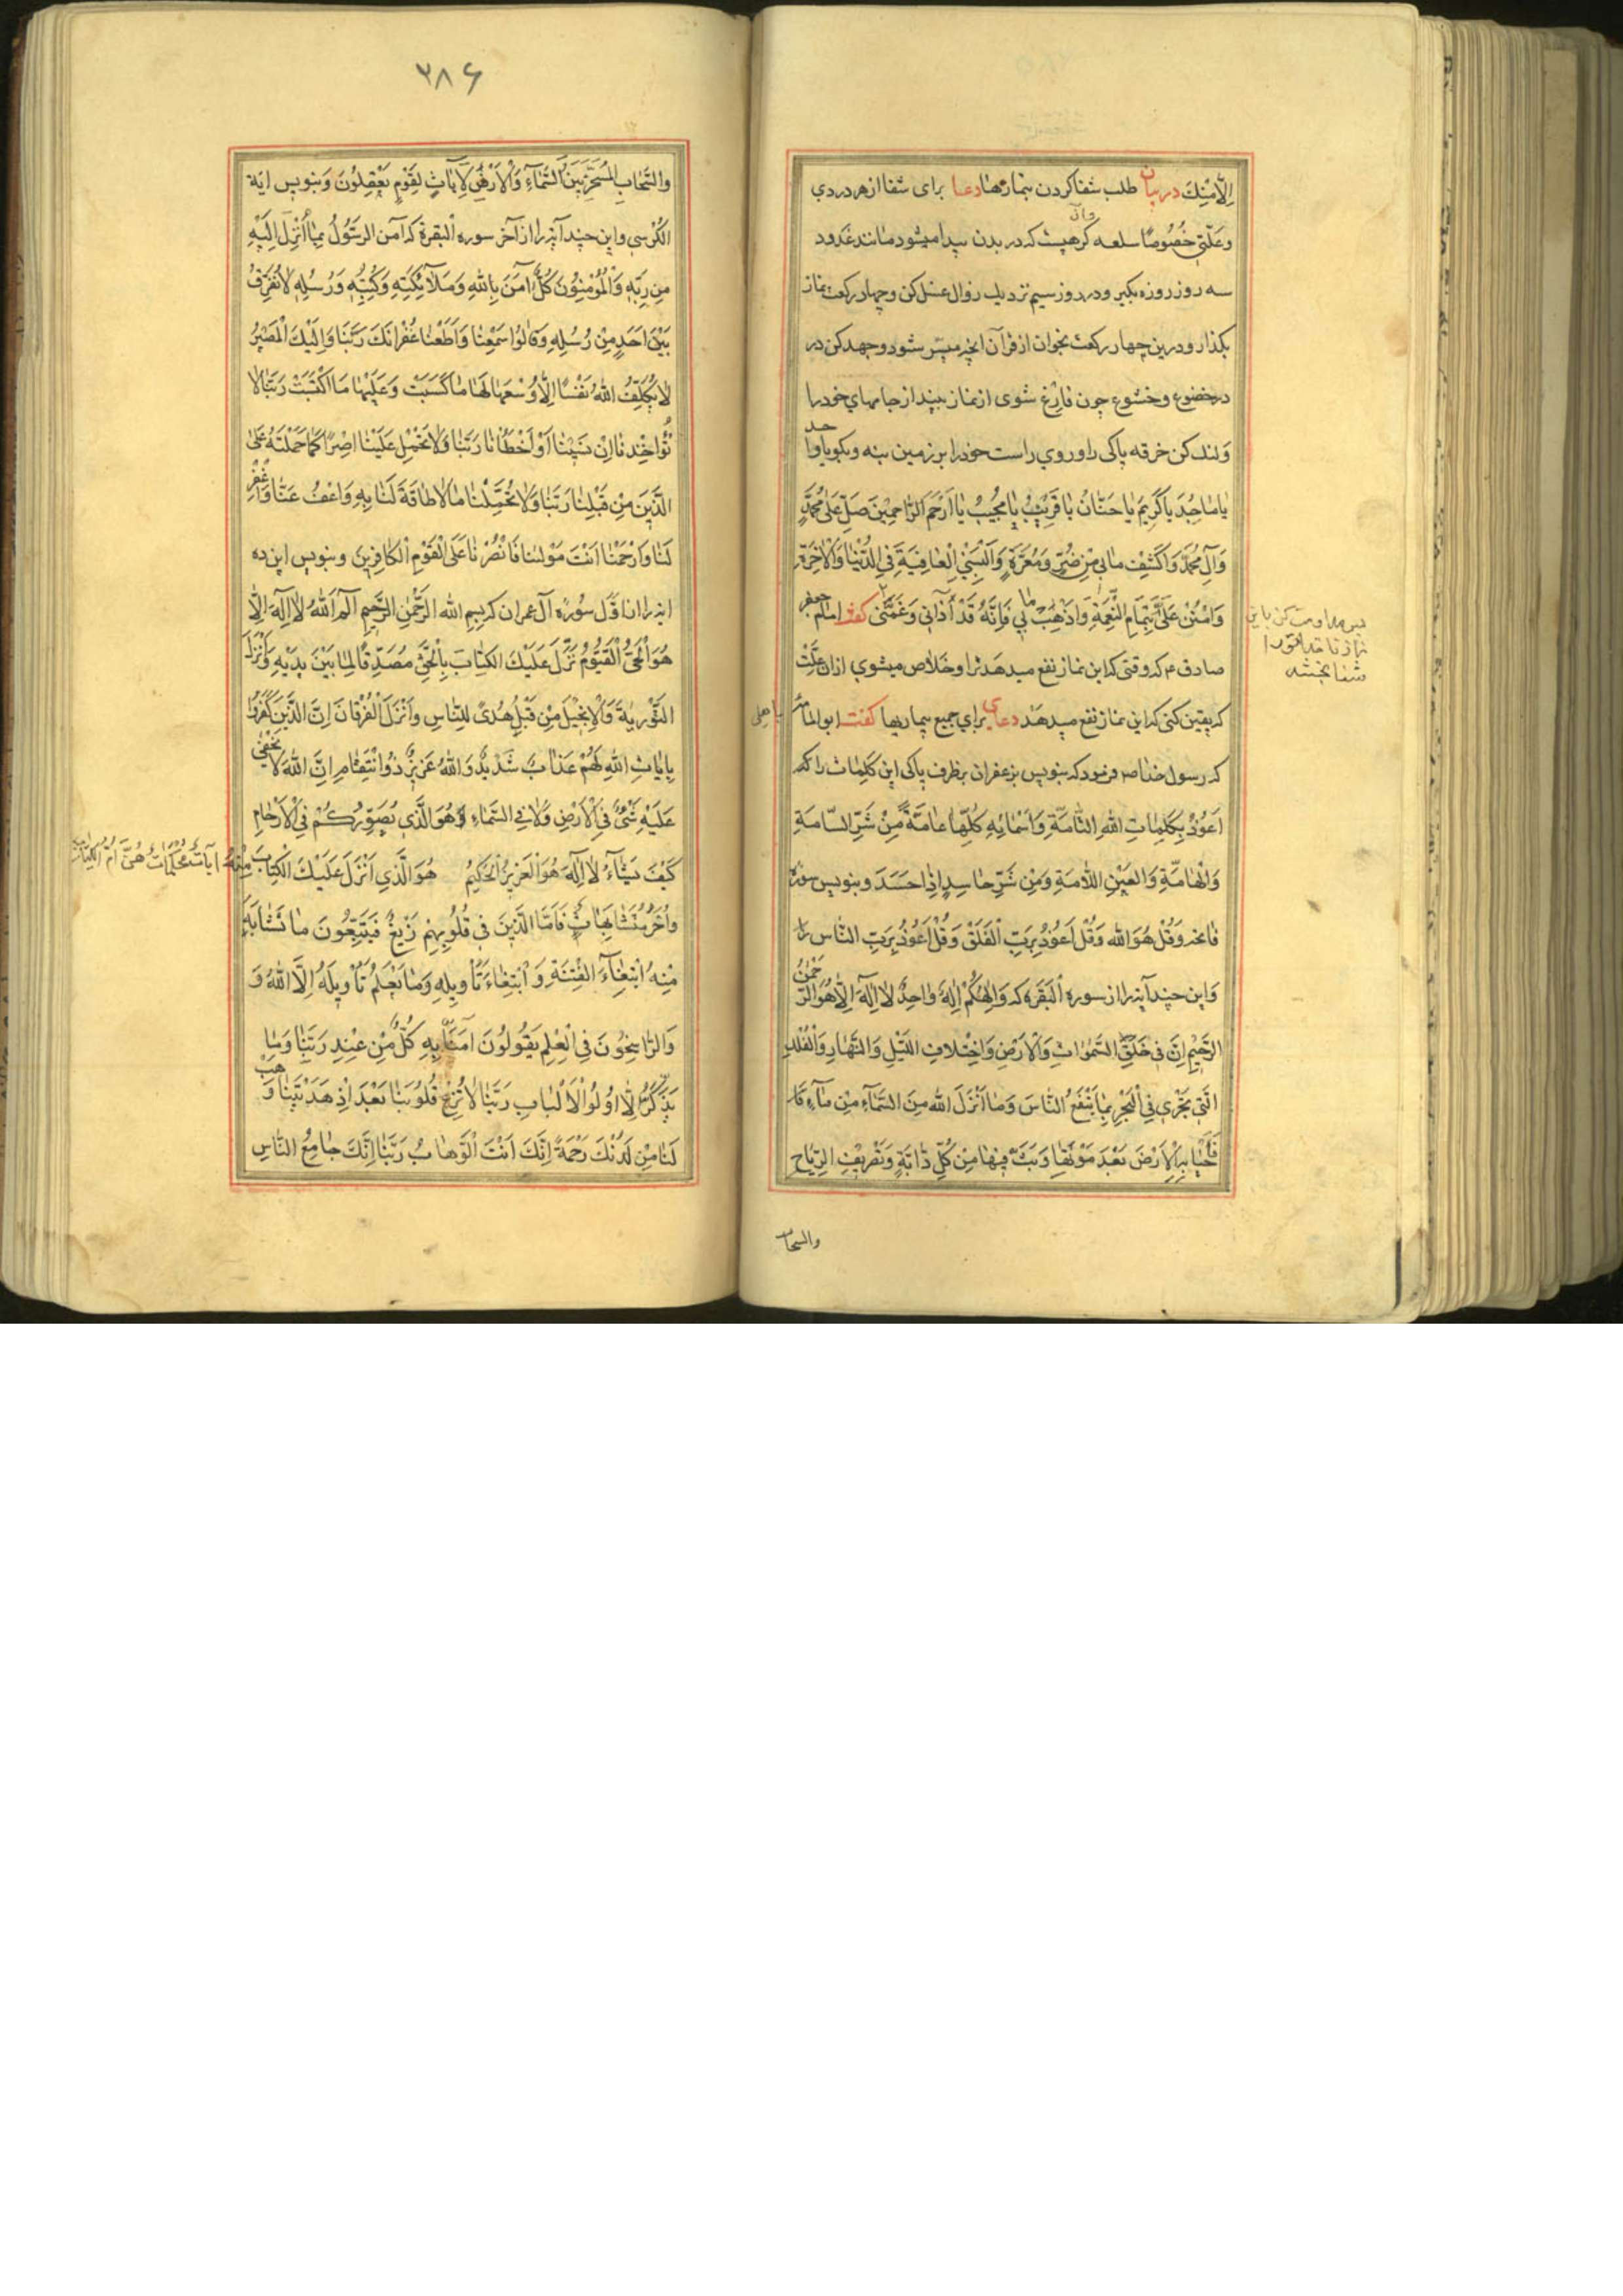 اِلَّا مِنْكَ در بیان طلب شفا کردن بیماریها دعا برای شفا از هر دردی
وعلّتی خُصُوصًا سلعه وآن کرهیست که در بدن پیدا میشود مانند غدود
سه روز روزه بگیر و در روز سیم نزدیك زوال غسل کن وچهار رکعت نماز
بگذار ودرین چهار رکعت بخوان از قرآن انچه میسّر شود وجهد کن در
در خضوع وخشوع چون فارغ شوی از نماز بینداز جامهای خود را
ولنك کن خرقه پاکی را وروی راست خود را بر زمین بنه وبکو یا واحد
یا مٰاجِدُ یا کَرِیمُ یا حَنّٰانُ یا قَریبُ یا مُجیبُ یا اَرْحَمَ الرّٰاحِمِینَ صَلِّ عَلیٰ مُحَمَّدٍ
وَآلِ مُحَمَّدٍ وَاکْشِفْ مٰا بی مِنْ ضُرٍّ وَمَعَرَّةٍ وَاَلْبِسْنِی الْعٰافِیَةَ فِی الدُّنْیٰا وَالْاٰخِرَةِ
وَامْنُنْ عَلَیَّ بِتَمٰامِ النِّعْمَةِ وَاَذْهِبْ مٰا بی فَاِنَّهُ قَدْ آذٰانی وَغَمَّنی کفت امام جعفر
صادق ع که وقتی که این نماز نفع میدهد ترا وخلاص میشوی ازان علّت
که یقین کنی که این نماز نفع میدهد دعای برای جمیع بیماریها کفت ابو امامه
باهلی
که رسول خدا ص فرمود که بنویس بزعفران بر ظرف پاکی این کلمات را که
اَعُوذُ بِکَلِمٰاتِ اللّٰهِ التّٰامَّةِ وَاَسْمٰائِهِ کُلِّهٰا عٰامَّةً مِنْ شَرِّ السّٰامَّةِ
وَالْهٰامَّةِ وَالْعَیْنِ اللّٰامَّةِ وَمِنْ شَرِّ حٰاسِدٍ اِذٰا حَسَدَ وبنویس سوره
فاتحه وَقُلْ هُوَ اللّٰه وَقُلْ اَعُوذُ بِرَبِّ الْفَلَقْ وَقُلْ اَعُوذُ بِرَبِّ النّٰاس را
وَاین چند آیه را از سوره اَلْبَقَرَه که وَاِلٰهُکُمْ اِلٰهٌ وٰاحِدٌ لٰا اِلٰهَ اِلّٰا هُوَ الرَّحْمٰنُ
الرَّحیْمُ اِنَّ فی خَلْقِ السَّمٰوٰاتِ وَالْاَرْضِ وَاخْتِلٰافِ اللَّیْلِ وَالنَّهٰارِ وَالْفُلْكِ
الَّتی تَجْرِی فِی الْبَحْرِ بِمٰا یَنْفَعُ النّٰاسَ وَمٰا اَنْزَلَ اللّٰهُ مِنَ السَّمٰآءِ مِنْ مٰآءٍ فَا
فَاَحْیٰا بِهِ الْاَرْضَ بَعْدَ مَوْتِهٰا وَبَثَّ فیهٰا مِنْ کُلِّ دٰابَّةٍ وَتَصْریْفِ الرِّیٰاحِ
والسحاب
پس مداومت کن باین
نماز تا خدا تورا
شفا بخشد
۳۸۶
والسَّحٰابِ الْمُسَخَّرِ بَیْنَ السَّمٰآءِ وَالْاَرْضِ لَاٰیٰاتٍ لِقَوْمٍ یَعْقِلُونَ وَبنویس ایة
الکُرْسی واین چند آیه را از آخر سوره البقرة که آمَنَ الرَّسُولُ بِمٰا اُنْزِلَ اِلَیْهِ
مِنْ رَبِّهِ وَالْمُؤْمِنُونَ کُلٌّ آمَنَ بِاللّٰهِ وَمَلٰآئِکَتِهِ وَکُتُبِهِ وَرُسُلِهِ لٰا نُفَرِّقُ
بَیْنَ اَحَدٍ مِنْ رُسُلِهِ وَقٰالُوا سَمِعْنٰا وَاَطَعْنٰا غُفْرٰانَكَ رَبَّنٰا وَاِلَیْكَ الْمَصیْرُ
لٰا یُکَلِّفُ اللّٰهُ نَفْسًا اِلّٰا وُسْعَهٰا لَهٰا مٰا کَسَبَتْ وَعَلَیْهٰا مَا اکْتَسَبَتْ رَبَّنٰا لٰا
تُؤٰاخِذْنٰا اِنْ نَسیٖنٰا اَوْ اَخْطَأْنٰا رَبَّنٰا وَلٰا تَحْمِلْ عَلَیْنٰا اِصْرًا کَمٰا حَمَلْتَهُ عَلَی
الَّذینَ مِنْ قَبْلِنٰا رَبَّنٰا وَلٰا تُحَمِّلْنٰا مٰا لٰا طٰاقَةَ لَنٰا بِهِ وَاعْفُ عَنّٰا وَاغْفِرْ
لَنٰا وَارْحَمْنٰا اَنْتَ مَوْلٰینٰا فَانْصُرْنٰا عَلَی الْقَوْمِ الْکٰافِرِینَ وبنویس این ده
ایه را از اوّل سُورۀ آل عمران که بِسِمِ اللّٰه الرَّحْمٰنِ الرَّحیمِ الٓمٓ اَللّٰهُ لٰا اِلٰهَ اِلّٰا
هُوَ الْحَیُّ الْقَیُّومُ نَزَّلَ عَلَیْكَ الْکِتٰابَ بِالْحَقِّ مُصَدِّقًا لِمٰا بَیْنَ یَدَیْهِ وَاَنْزَلَ
التَّوْرٰیةَ وَالْاِنْجیلَ مِنْ قَبْلُ هُدًی لِلنّٰاسِ وَاَنْزَلَ الْفُرْقٰانَ اِنَّ الَّذینَ کَفَرُوا
بِاٰیٰاتِ اللّٰهِ لَهُمْ عَذٰابٌ شَدیدٌ وَاللّٰهُ عَزیزٌ ذُو انْتِقٰامٍ اِنَّ اللّٰهَ لٰا یَخْفٰی
عَلَیْهِ شَیْءٌ فِی الْاَرْضِ وَلٰا فِی السَّمٰاءِ وَ هُوَ الَّذی یُصَوِّرُکُمْ فِی الْاَرْحٰامِ
کَیْفَ یَشٰآءُ لٰا اِلٰهَ هُوَ الْعَزیزُ الْحَکیمُ هُوَ الَّذی اَنْزَلَ عَلَیْكَ الْکِتٰابَ مِنْهُ آیٰاتٌ مُحْکَمٰاتٌ هُنَّ اُمُّ الْکِتٰابِ
وَاُخَرُ مُتَشٰابِهٰاتٌ فَاَمَّا الَّذینَ فی قُلُوبِهِمْ زَیْغٌ فَیَتَّبِعُونَ مٰا تَشٰابَهَ
مِنْهُ ابْتِغٰآءَ الْفِتْنَةِ وَ ابْتِغٰاءَ تَأْویلِهِ وَمٰا یَعْلَمُ تَأْویلَهُ اِلَّا اللّٰهُ وَ
وَالرّٰاسِخُونَ فِی الْعِلْمِ یَقُولُونَ آمَنّٰا بِهِ کُلٌّ مِنْ عِنْدِ رَبِّنٰا وَمٰا
یَذَّکَّرُ اِلّٰا اُولُوا الْاَلْبٰابِ رَبَّنٰا لٰا تُزِغْ قُلُوبَنٰا بَعْدَ اِذْ هَدَیْتَنٰا وَهَبْ
لَنٰا مِنْ لَدُنْكَ رَحْمَةً اِنَّكَ اَنْتَ الْوَهّٰابُ رَبَّنٰا اِنَّكَ جٰامِعُ النّٰاسِ